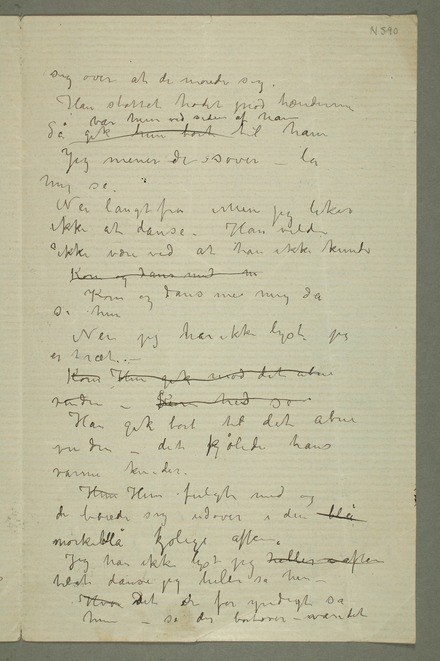 N 590
sig over at de morede sig.
Han støttet hodet mod hænderne
var hun ved siden af ham
Så gik hun bort til ham
Jeg mener de sover – la
mig se.
Nei langt fra men jeg liker
ikke at danse. Han vilde
ikke være ved at han ikke kunde
Kom og dans med m
Kom og dans med mig da
sa hun
Nei jeg har ikke lyst jeg
er træt. –
Kom Hun gik mod det åbne
vindu –
Han gik bort til det åbne
vindu – det kjølede hans
varme kinder.
Hun Hun fulgte med og
de bøiede sig udover i den blå
mørkeblå kjølige aften.
Jeg har ikke lyst jeg heller aften
danse jeg heller sa hun –
Hvor Det er for yndigt sa
hun – se der bortover – vandet